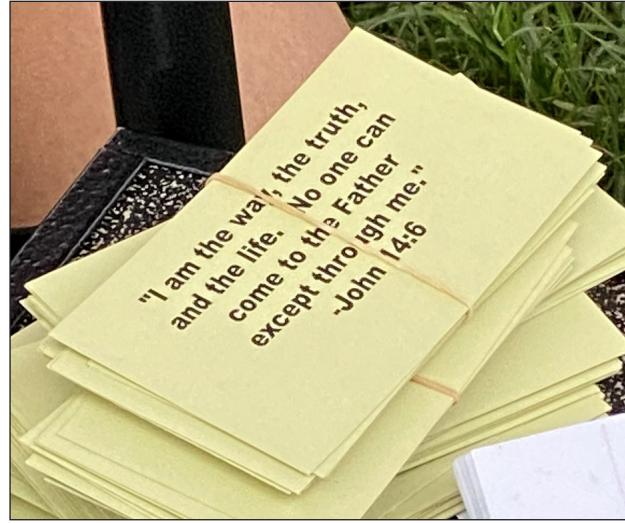 "I am the way, the truth,
and the life. No one can
come to the Father
except through me."
-John 14:6